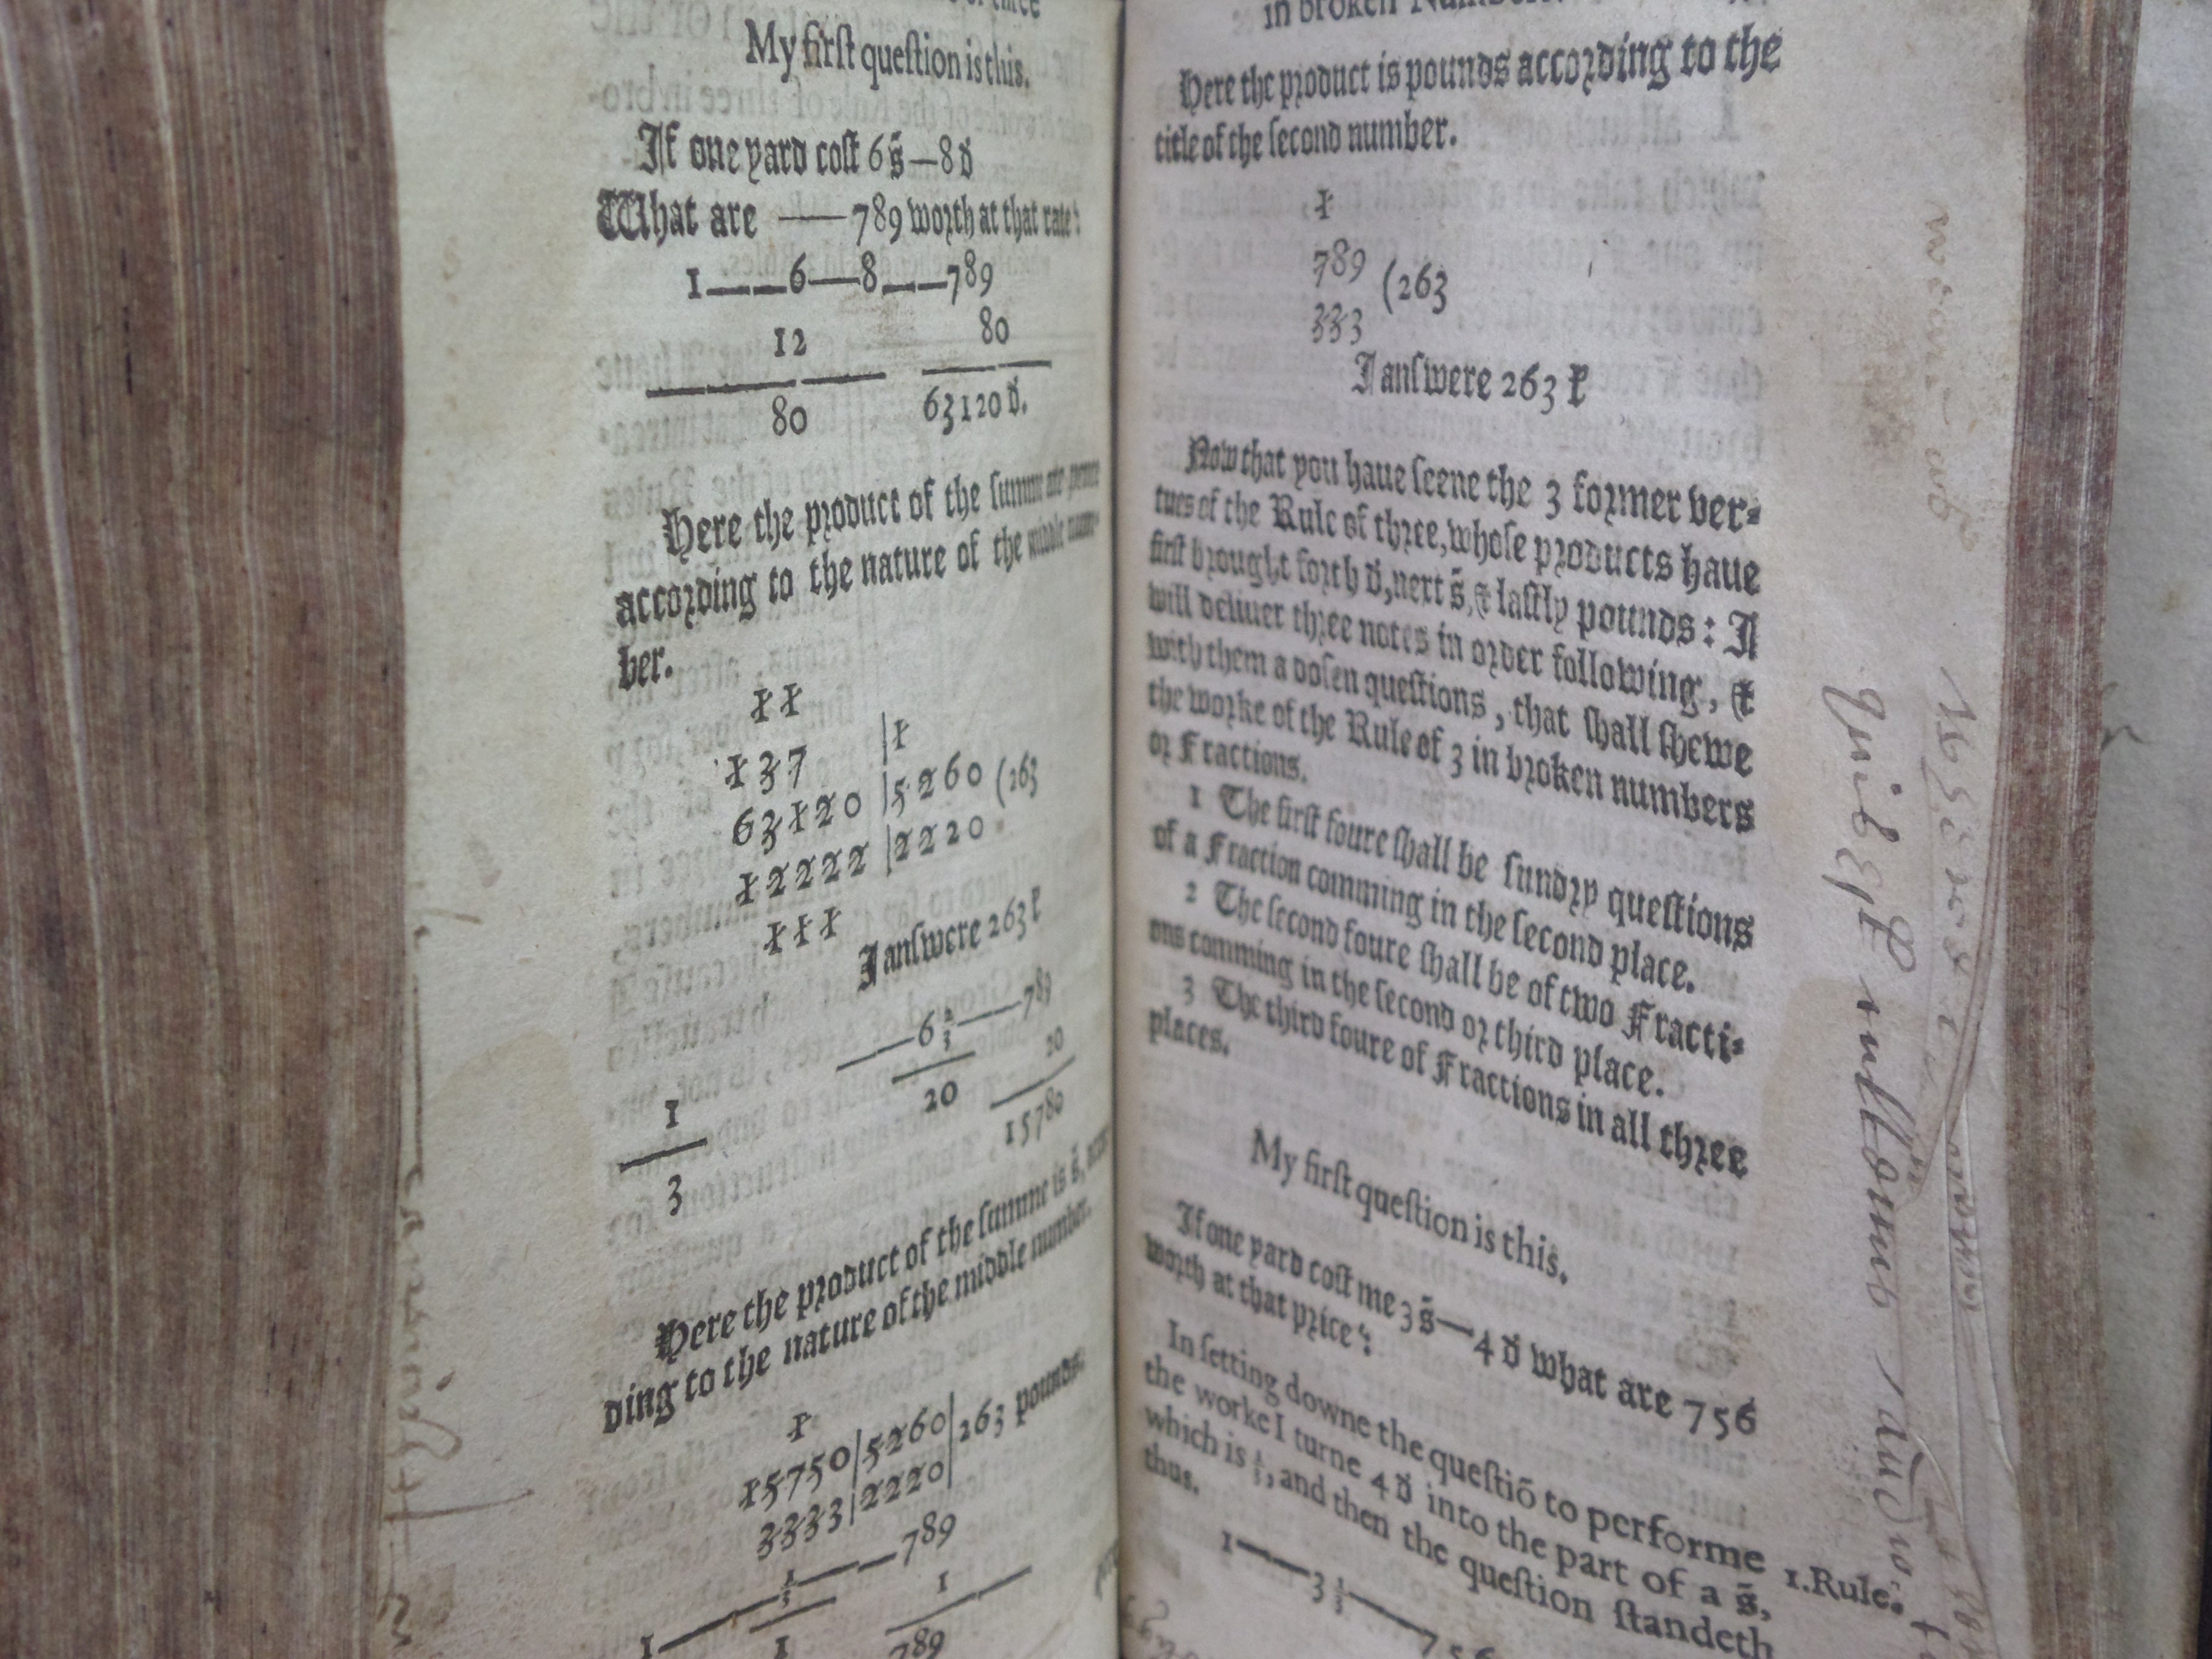 My firſt queſtion is this.
If one yard coſt 6 s̃—8 d̃
What are —— 789 worth at that rate?
1———6—8———789
12 80
80 63120 d̃.
Here the product of the ſumm are pence
according to the nature of the middle num-
ber.
1 1
1 3 7 | 1
63120 | 5260 (263
12222 | 2220
1 1 1
I anſwere 263 l
——6 2/3——789
1 20 20
3 15780
Here the product of the ſumme is s̃,
ding to the nature of the middle number.
1
15750|5260|263 pounds.
3333|2220
1———1/3———789
1 1
789
in broken
Here the product is pounds according to the
title of the ſecond number.
1
789 (263
333
I anſwere 263 l
Now that you haue ſeene the 3 former ver-
tues of the Rule of three, whoſe products haue
firſt brought forth d̃, next s̃, & laſtly pounds: I
will deliuer three notes in order following, &
with them a doſen queſtions, that ſhall ſhewe
the worke of the Rule of 3 in broken numbers
or Fractions.
1 The firſt foure ſhall be ſundry queſtions
of a Fraction comming in the ſecond place.
2 The ſecond foure ſhall be of two Fracti-
ons comming in the ſecond or third place.
3 The third foure of Fractions in all three
places.
My firſt queſtion is this.
If one yard coſt me 3 s̃—4 d̃ what are 756
worth at that price?
In ſetting downe the queſtiõ to performe 1.Rule.
the worke I turne 4 d̃ into the part of a s̃,
which is 1/3, and then the queſtion ſtandeth
thus.
1——3 1/3——756